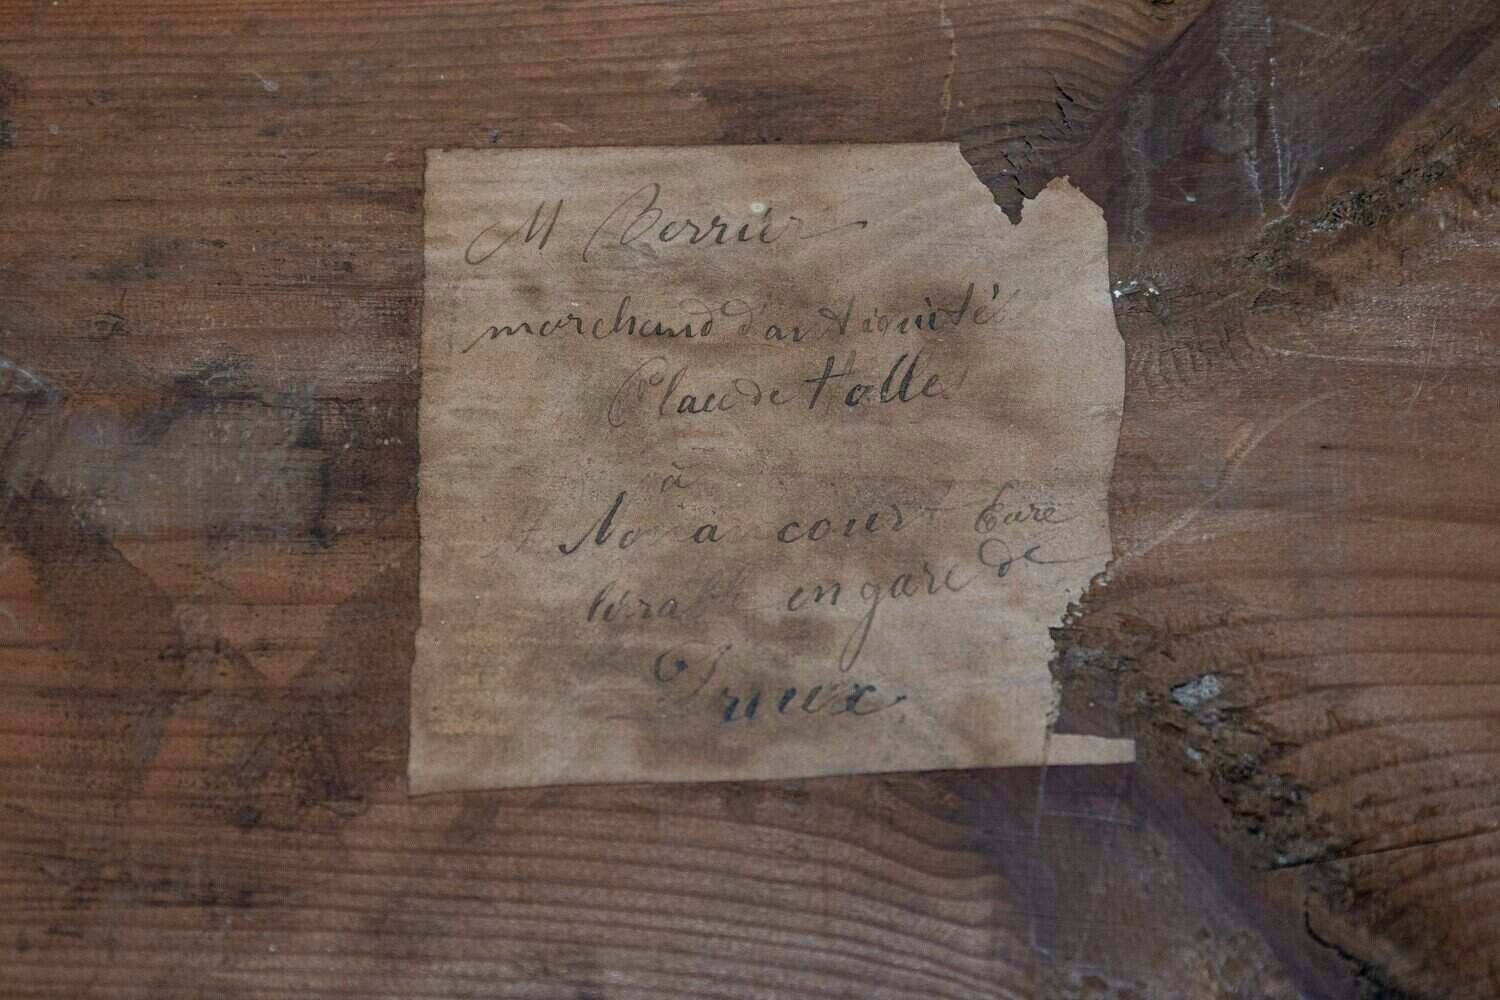 M Berrier
marchand d'antiquités
Place de talle
à
Nonancourt Eure
livrable en gare de
Dreux